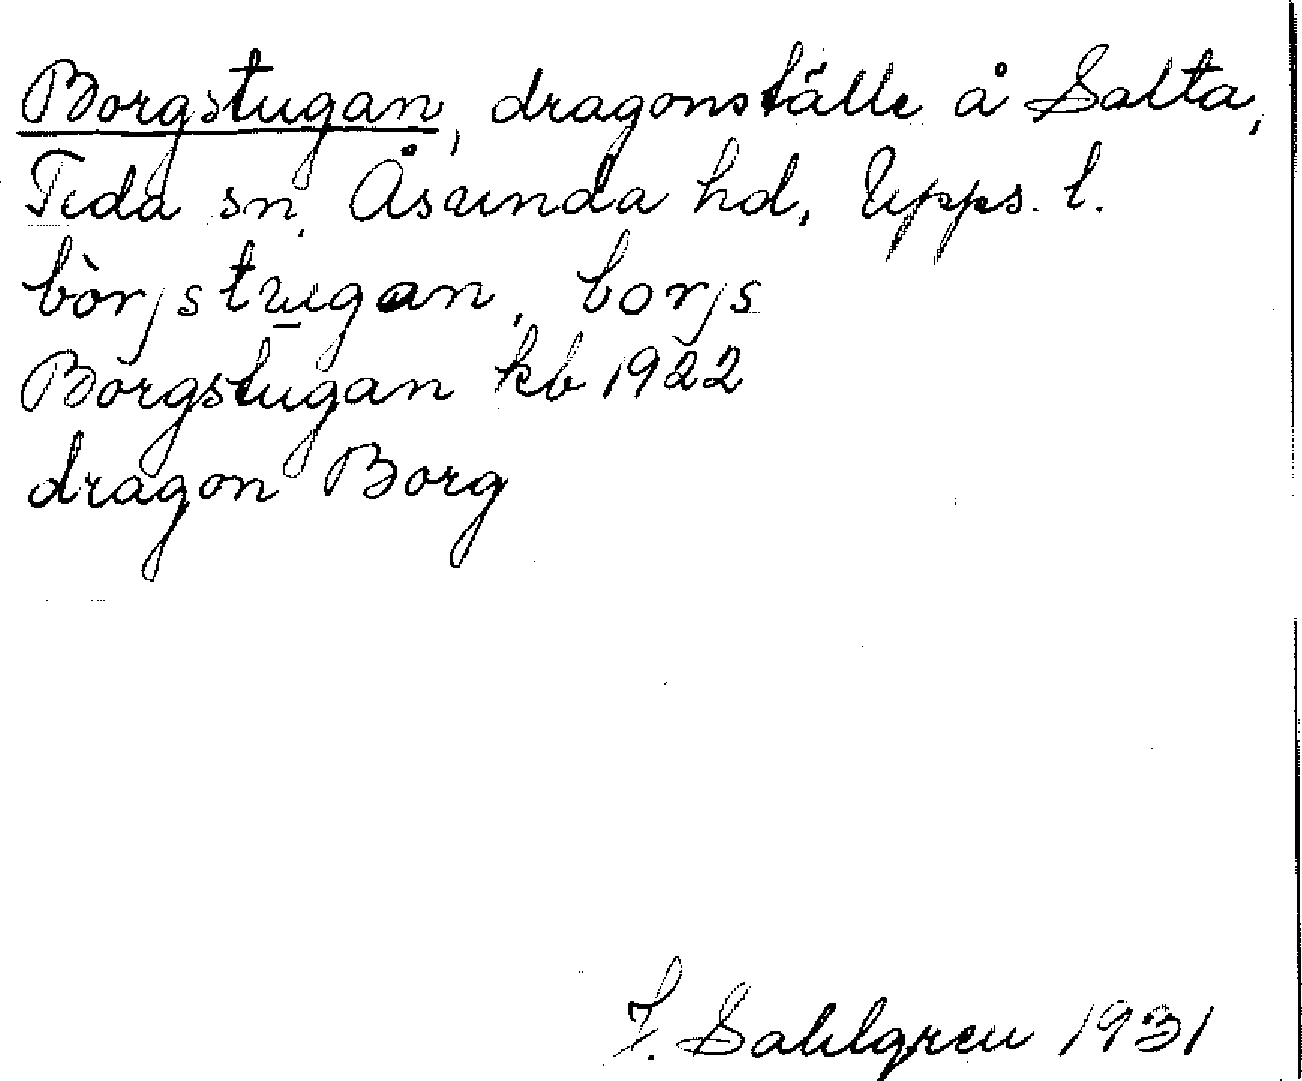 Borgstugan, dragonställe å Salta,
Tida sn, Åsunda hd, Upps. l.
bòrjstugan, borjs
Borgstugan kb 1922
dragon Borg
J. Sahlgren 1931